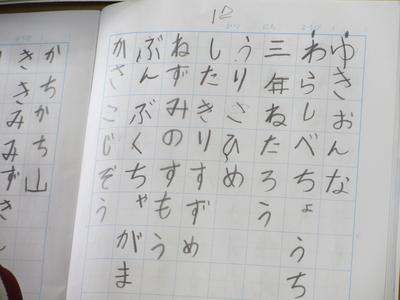 ゆきおんな
わらしべちょうち
三年ねたろう
うりさひめ
したきりすずめ
ねずみのすもう
ぶんぶくちゃがま
かさこじぞう
かちかち山
ききみみずき